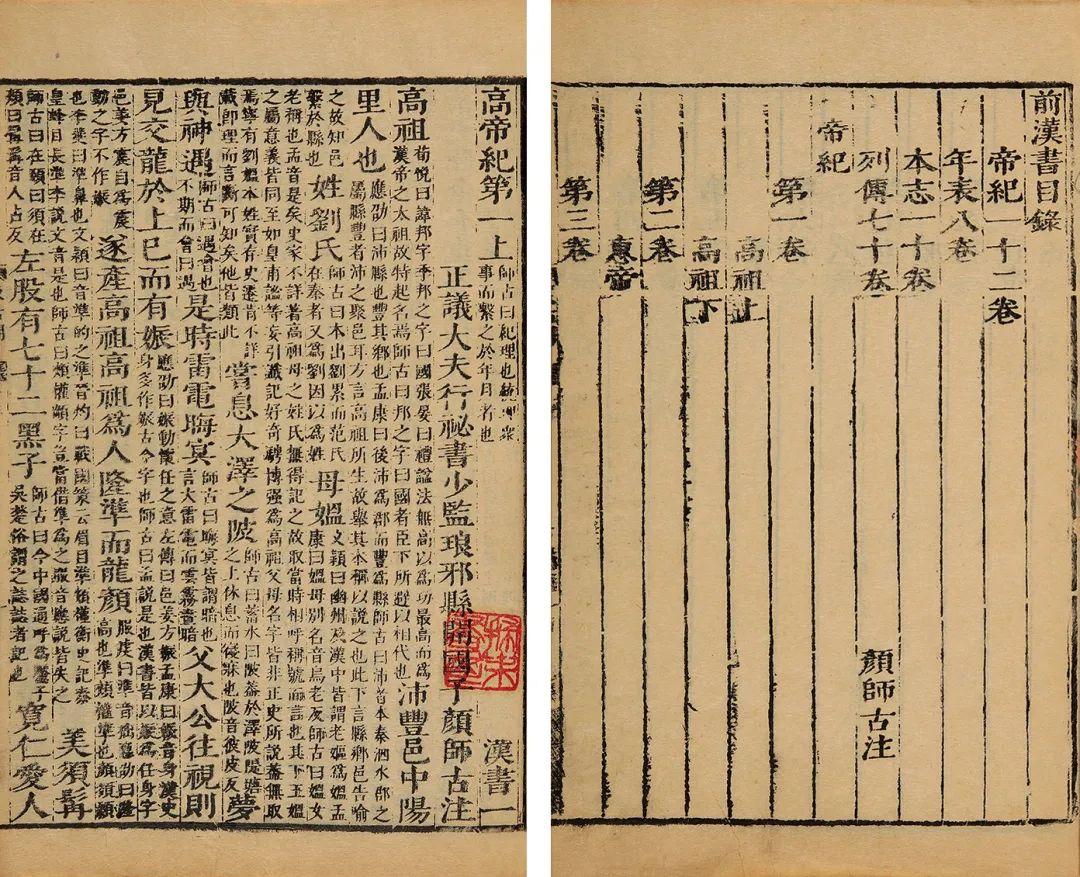 前漢書目錄
帝紀一十二卷
年表八卷
本志一十卷
列傳七十卷 顏師古注
帝紀
第一卷
高祖上
高祖下
第二卷
惠帝
第三卷
高帝紀第一上 師古曰紀理也統理衆事而繫之於年月者也 漢書一
正議大夫行祕書少監琅邪縣開國子顏師古注
高祖 荀悅曰諱邦字季邦之字曰國張晏曰禮諡法無高以為功最高而為漢帝之太祖故特起名焉師古曰邦之字曰國者臣下所避以相代也 沛豐邑中陽
里人也 應劭曰沛縣也豐其鄉也孟康曰後沛為郡而豐為縣師古曰沛者本秦泗水郡之屬縣豐者沛之聚邑耳方言高祖所生故舉其本稱以說之也此下言縣鄉邑告喻
之故知邑繫於縣也 姓劉氏 師古曰本出劉累而范氏在秦者又為劉因以為姓 母媼 文穎曰幽州及漢中皆謂老嫗為媼孟康曰媼母別名音烏老反師古曰媼女
老稱也孟音是矣史家不詳著高祖母之姓氏無得記之故取當時相呼稱號而言也其下王媼之屬意義皆同至如皇甫謐等妄引讖記好奇騁博强為高祖父母名字皆非正史所說蓋無取
焉寧有劉媼本姓實存史遷肯不詳載即理而言斷可知矣他皆類此 嘗息大澤之陂 師古曰蓄水曰陂蓋於澤陂隄塘之上休息而寢寐也陂音彼皮反 夢
與神遇 師古曰遇會也不期而會曰遇 是時雷電晦冥 師古曰晦冥皆謂暗也言大雷電而雲霧晝暗 父大公往視則
見交龍於上已而有娠 應劭曰娠動懷任之意左傳曰邑姜方娠孟康曰娠音身漢史身多作娠古今字也師古曰孟說是也漢書皆以娠為任身字
邑姜方震自為震動之字不作娠 遂產高祖高祖為人隆準而龍顏 服虔曰準音拙應劭曰隆高也準頰權準也顏頟顙
也李斐曰準鼻也文穎曰音準的之準晉灼曰戰國策云眉目準頞權衡史記秦皇蜂目長準李說文音是也師古曰頰權顴字豈當借準為之服音應說皆失之 美須髯
師古曰在頤曰須在頰曰髯髯音人占反 左股有七十二黑子 師古曰今中國通呼為黶子吳楚俗謂之誌誌者記也 寬仁愛人